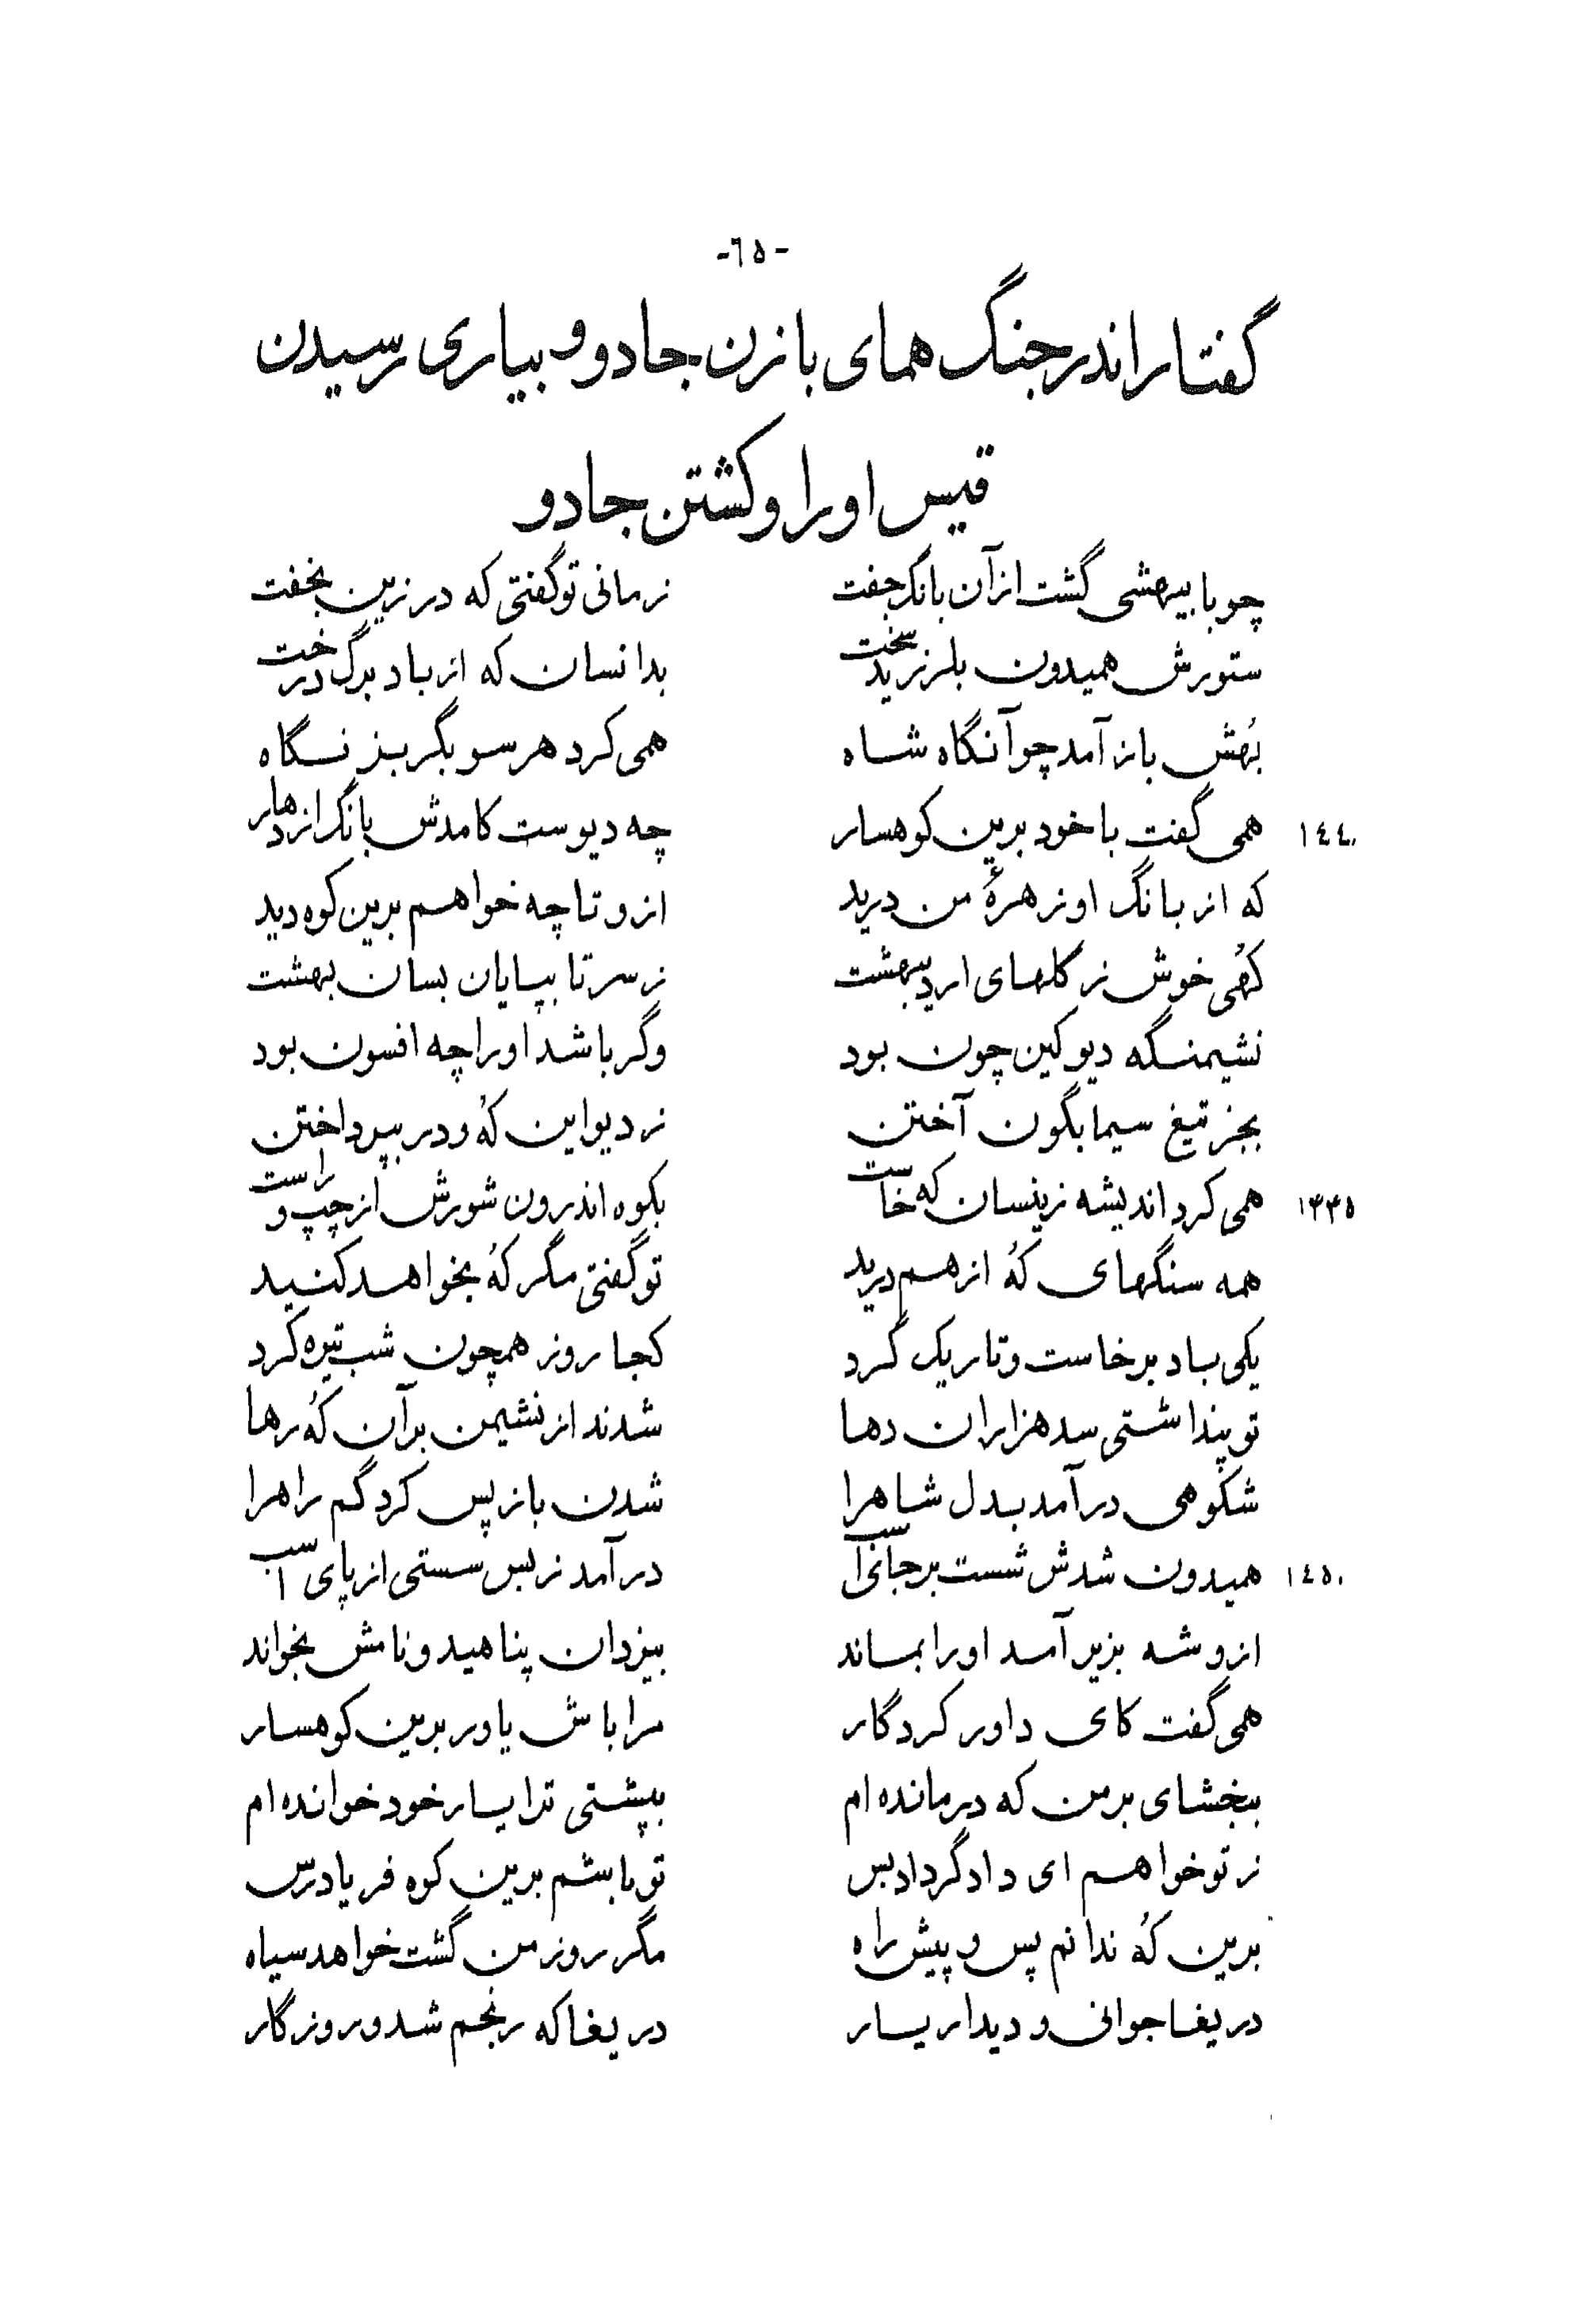 -٦٥-
گفتار اندر جنگ همای با زن جادو و بیاری رسیدن
قیس او را و کشتن جادو
چو با بیهشی گشت از آن بانگ جفت زمانی تو گفتی که در زین بخفت
ستورش همیدون بلرزید سخت بدانسان که از باد برگ درخت
بهُش باز آمد چو آنگاه شاه همی کرد هر سو بگربز نگاه
١٤٤٠ همی گفت با خود برین کوهسار چه دیوست کامدش بانگ از دهار
که از بانگ او زهرهٔ من درید ازو تا چه خواهم برین کوه دید
کُهی خوش ز گلهای اردیبهشت ز سر تا بپایان بسان بهشت
نشیمنگه دیو کین چون بود وگر باشد او را چه افسون بود
بجز تیغ سیمابگون آختن ز دیو این کُه و در بپرداختن
١٣٣٥ همی کرد اندیشه زینسان که خاست بکوه اندرون شورش از چپ و راست
همه سنگهای کُه از هم درید تو گفتی مگر کُه بخواهد کنید
یکی باد برخاست و تاریک گرد کجا روز همچون شب تیره کرد
تو پنداشتی سد هزاران دها شدند از نشیمن بر آن کُه رها
شکوهی درآمد بدل شاه را شدن باز پس کرد گم راه را
١٤٥٠ همیدون شدش شست بر جای اسب درآمد ز بس سستی از پای اسب
ازو شه بزیر آمد او را بماند بیزدان پناهید و نامش بخواند
همی گفت کای داور کردگار مرا باش یاور برین کوهسار
ببخشای بر من که درمانده ام بپشتی ترا یار خود خوانده ام
ز تو خواهم ای دادگر داد بس تو باشم برین کوه فریادرس
برین کُه ندانم پس و پیش راه مگر روز من گشت خواهد سیاه
دریغا جوانی و دیدار یار دریغا که رنجم شد و روزگار